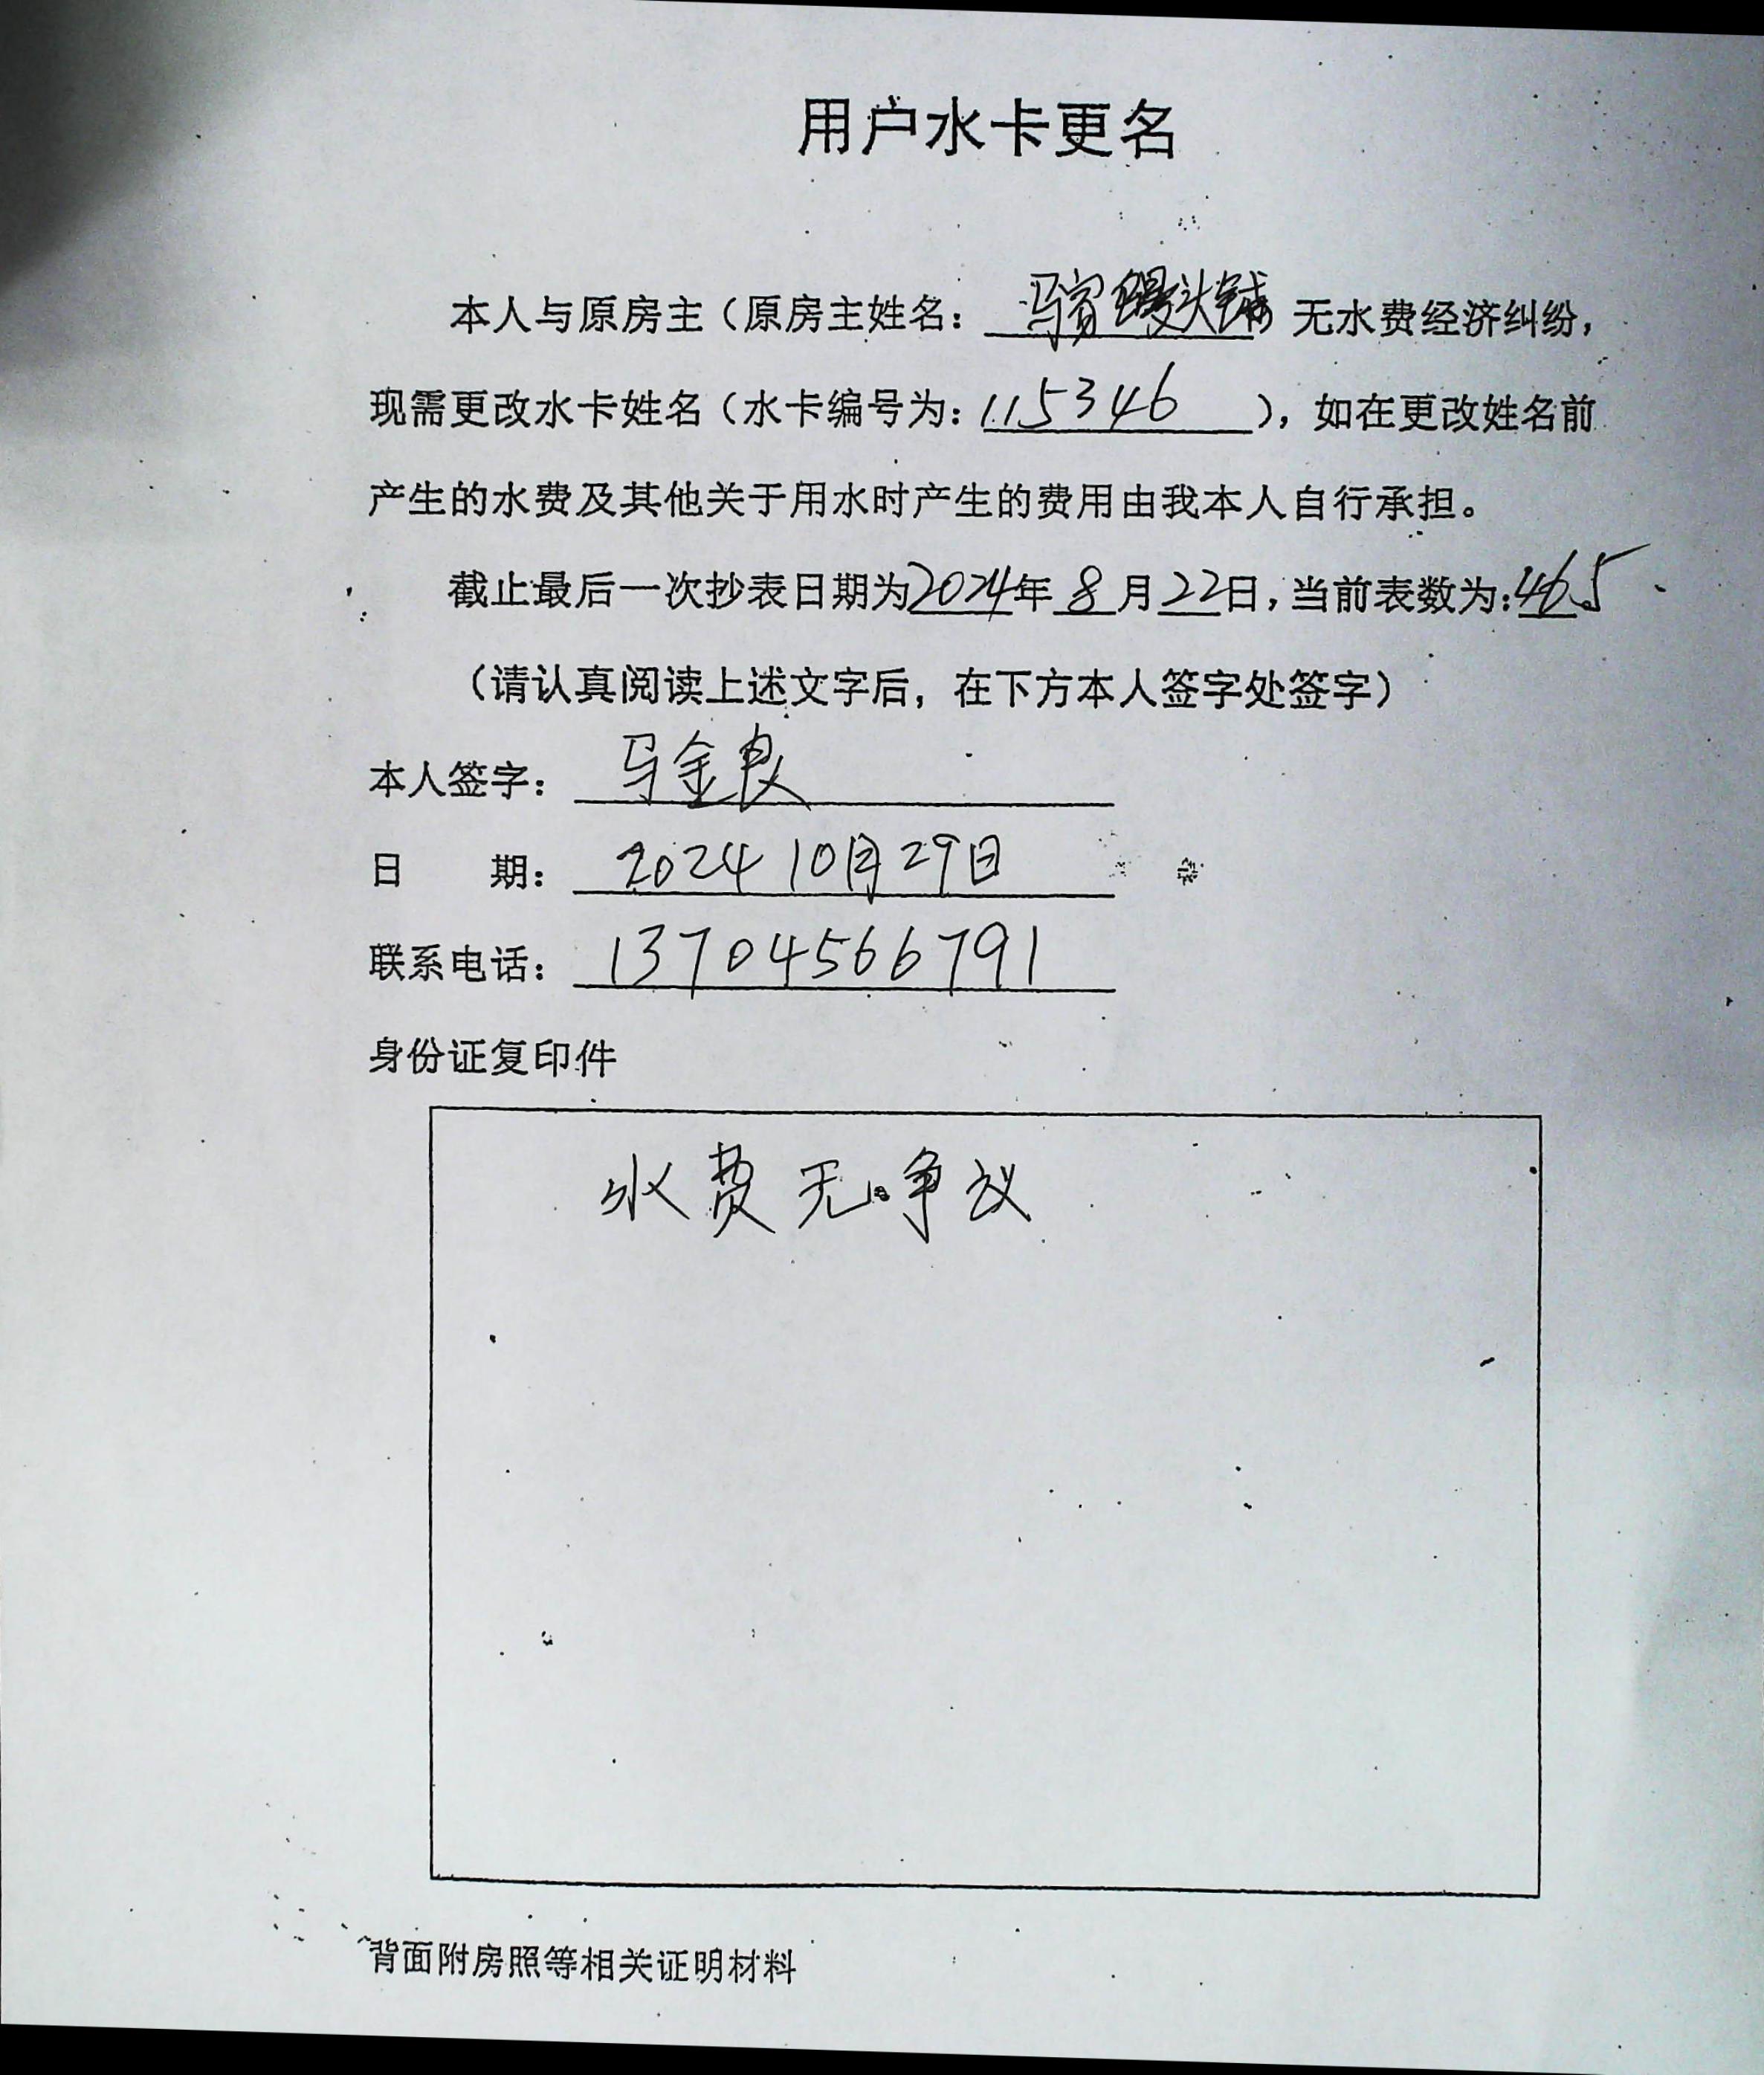 用户水卡更名
本人与原房主（原房主姓名：冯家馒头铺 无水费经济纠纷，
现需更改水卡姓名（水卡编号为：115346），如在更改姓名前
产生的水费及其他关于用水时产生的费用由我本人自行承担。
截止最后一次抄表日期为2024年8月22日，当前表数为：465
（请认真阅读上述文字后，在下方本人签字处签字）
本人签字：马金良
日 期：2024 10月29日
联系电话：13704566791
身份证复印件
水费无争议
背面附房照等相关证明材料